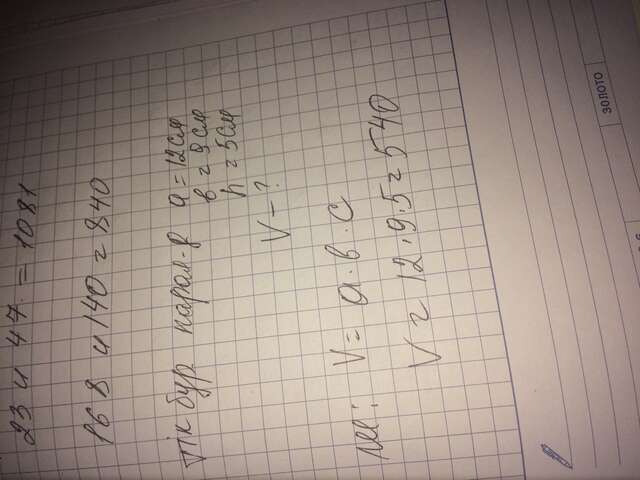 23 и 47 = 1081
168 и 140 = 840
тік бур парал-д a = 12см
в = 9см
h = 5см
V - ?
V = a · в · c
V = 12 · 9 · 5 = 540
золото